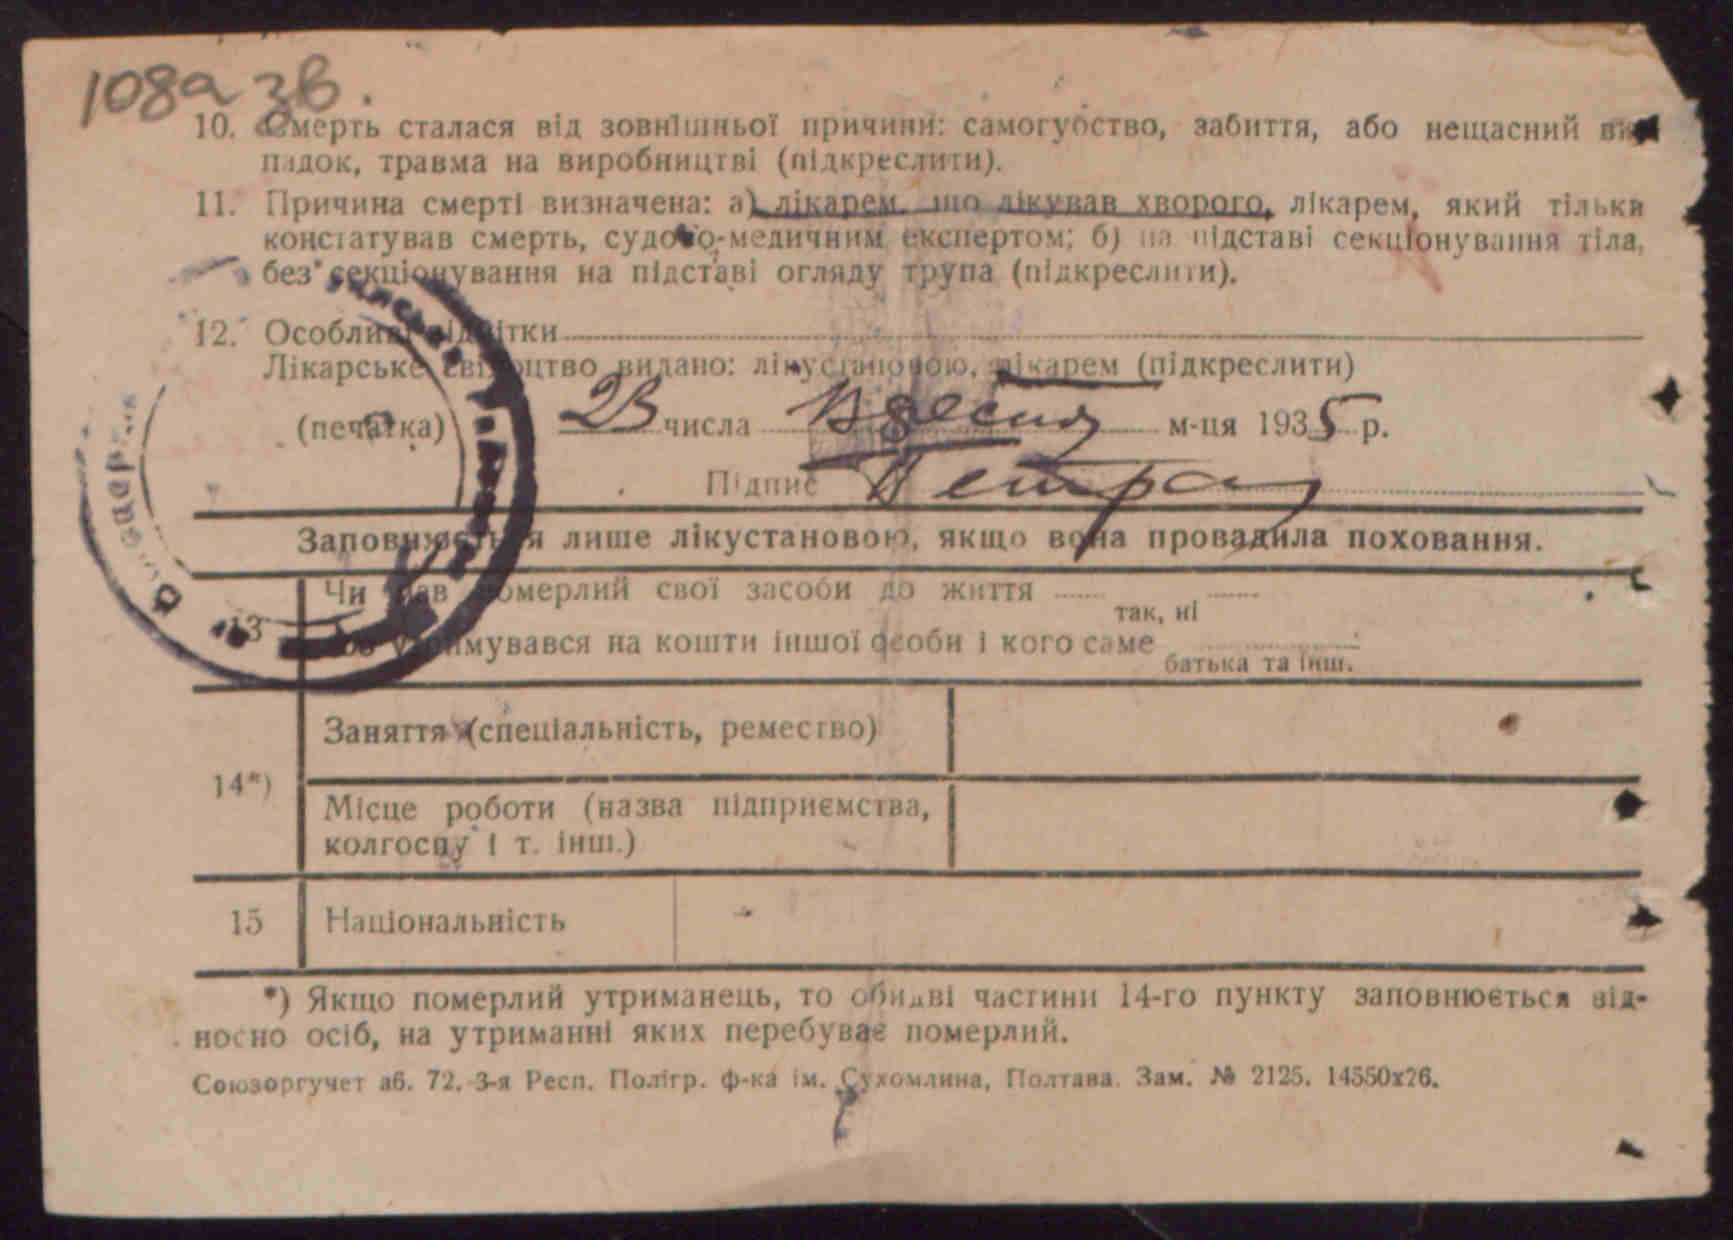 108а зв.
10. Смерть сталася від зовнішньої причини: самогубство, забиття, або нещасний ви-
падок, травма на виробництві (підкреслити).
11. Причина смерті визначена: а) лікарем, що лікував хворого, лікарем, який тільки
констатував смерть, судово-медичним експертом; б) на підставі секціонування тіла,
без секціонування на підставі огляду трупа (підкреслити).
12. Особливі відмітки
Лікарське свідоцтво видано: лікустановою, лікарем (підкреслити)
(печатка) 23 числа м-ця 1935 р.
Підпис
Заповнюється лише лікустановою, якщо вона провадила поховання.
13 Чи мав померлий свої засоби до життя
так, ні
або утримувався на кошти іншої особи і кого саме
батька та інш.
14*) Заняття (спеціальність, ремество)
Місце роботи (назва підприємства,
колгоспу і т. інш.)
15 Національність
*) Якщо померлий утриманець, то обидві частини 14-го пункту заповнюється від-
носно осіб, на утриманні яких перебуває померлий.
Союзоргучет аб. 72. 3-я Респ. Полігр. ф-ка ім. Сухомлина, Полтава. Зам. № 2125. 14550х26.